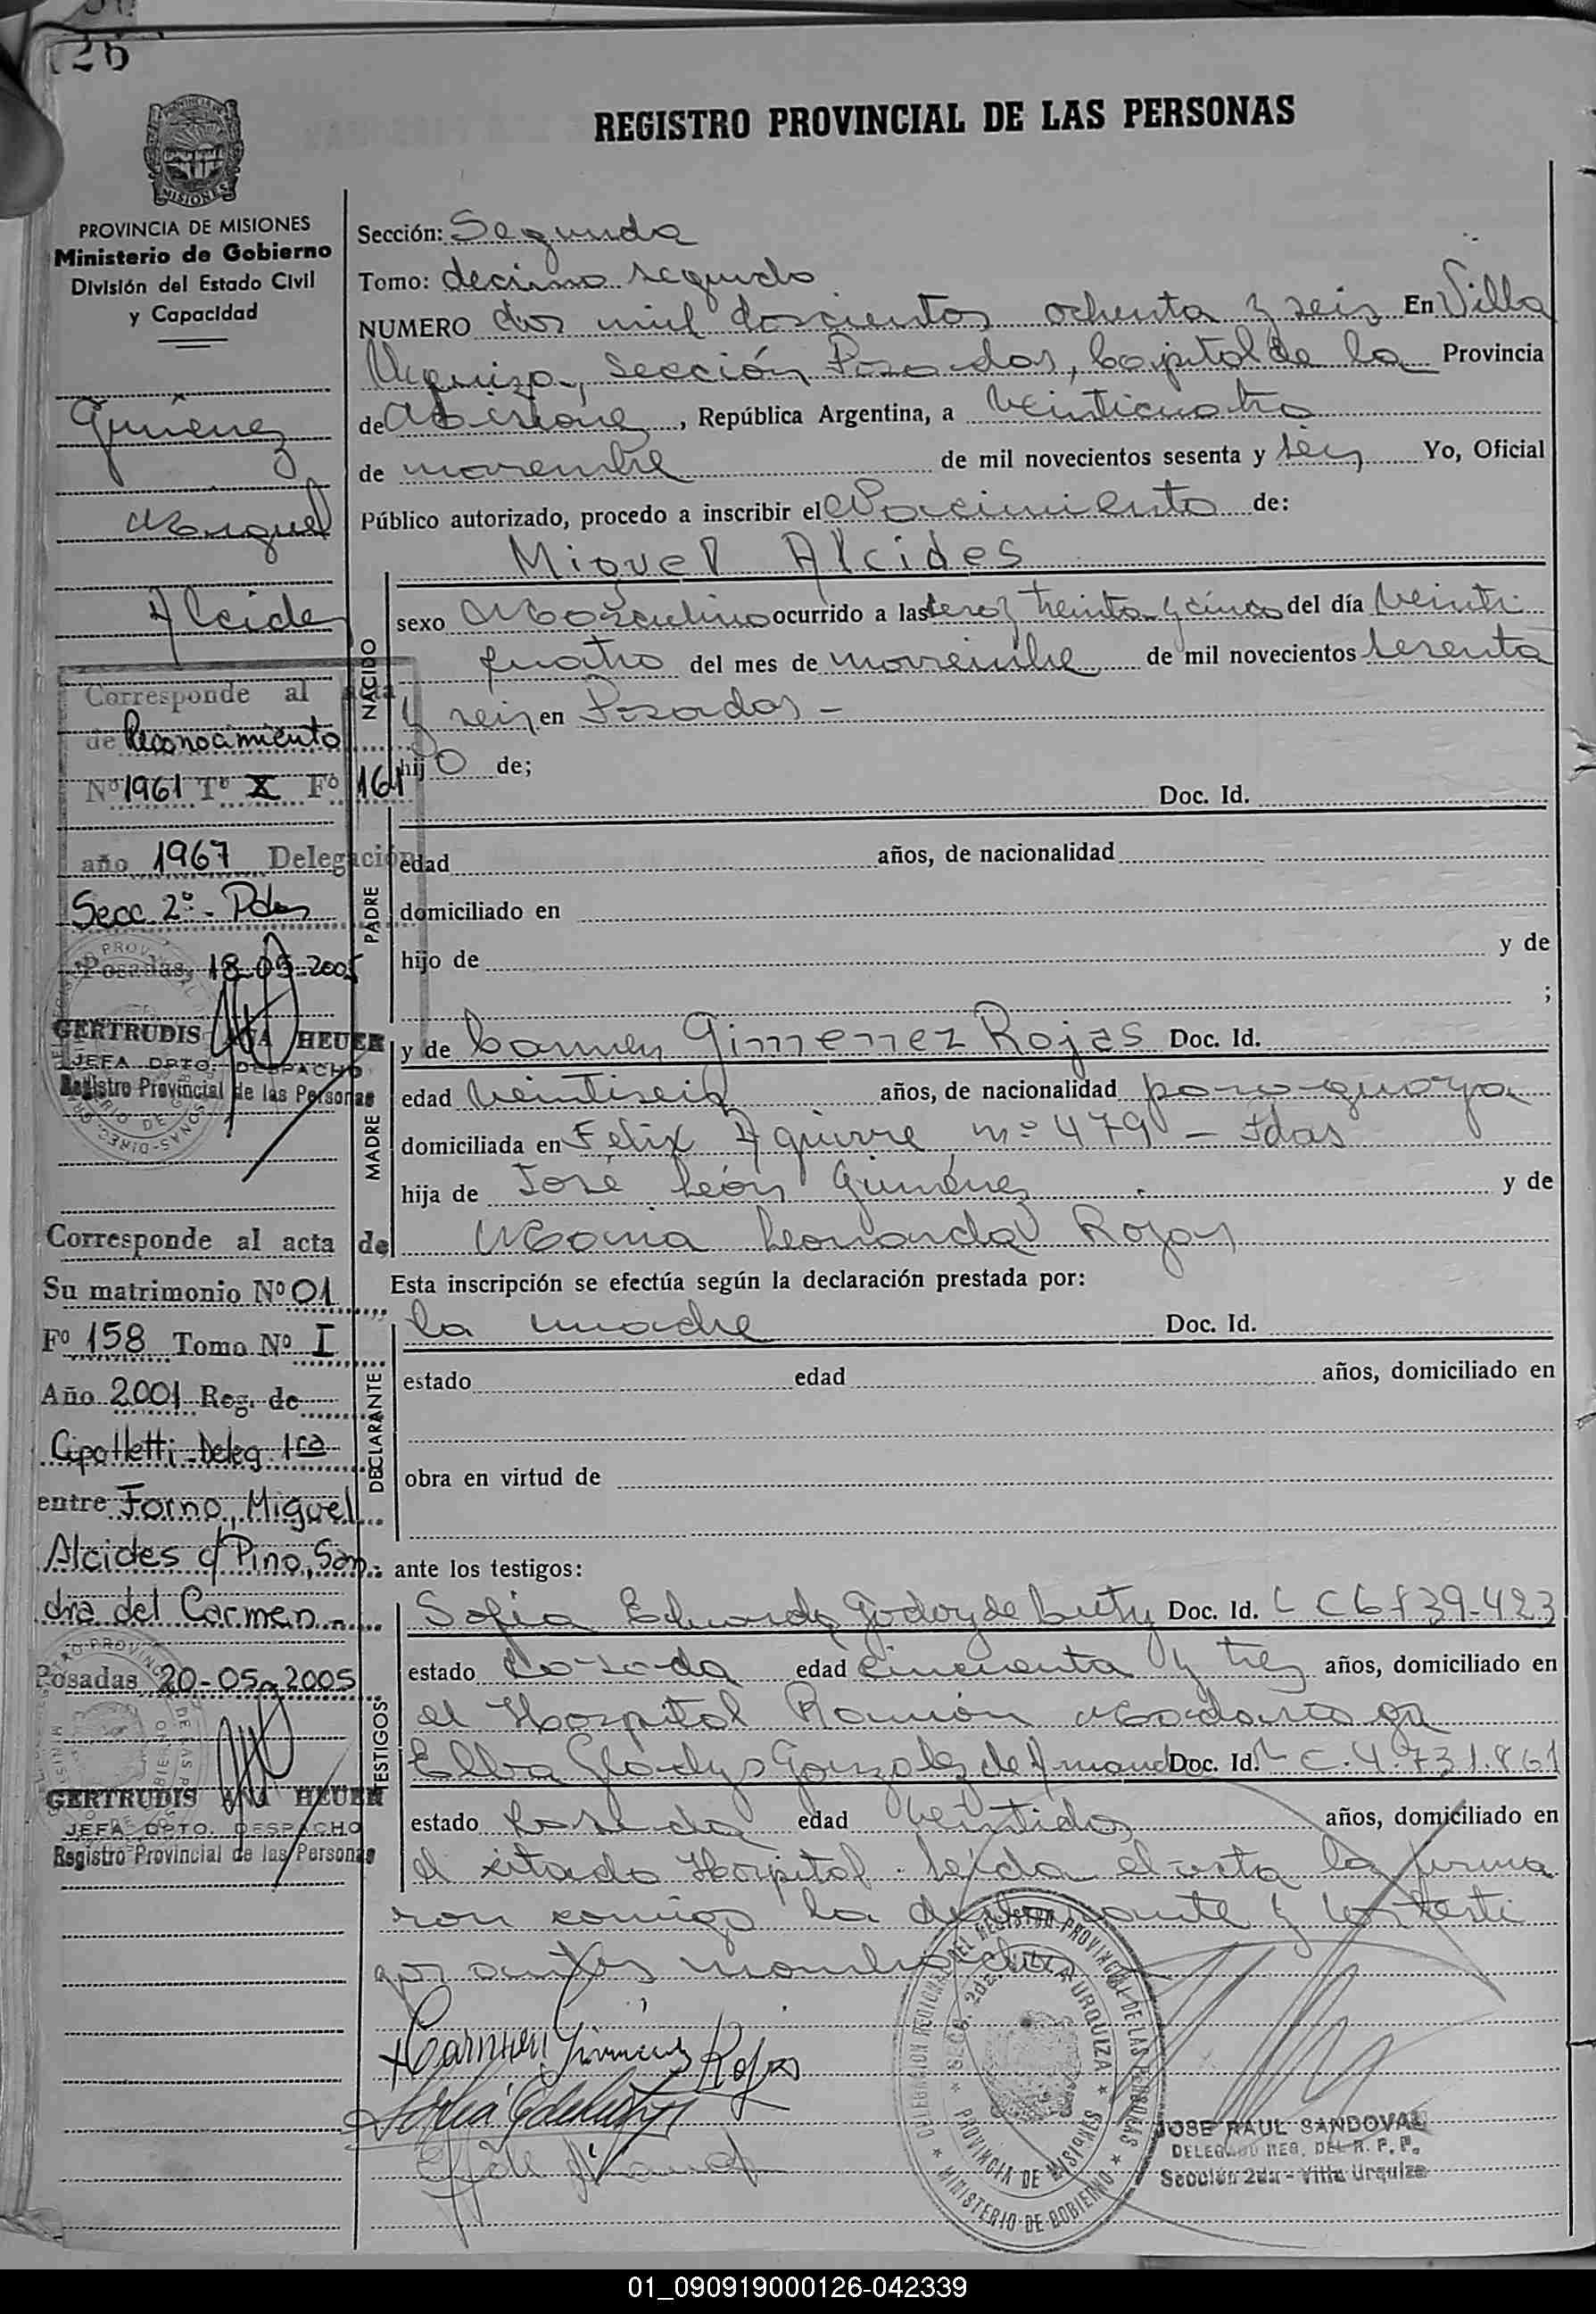 26
REGISTRO PROVINCIAL DE LAS PERSONAS
MISIONES
PROVINCIA DE MISIONES
Ministerio de Gobierno
División del Estado Civil
y Capacidad
Gimenez
Miguel
Alcides
Corresponde al acta
de Reconocimiento
Nº 1961 Tº X Fº 161
año 1967 Delegación
Secc. 2º - Pdas
Posadas, 18-05-2005
GERTRUDIS ANA HEUER
JEFA DPTO. DESPACHO
Registro Provincial de las Personas
Corresponde al acta de
Su matrimonio Nº 01
Fº 158 Tomo Nº I
Año 2001 Reg. de
Cipolletti - Deleg. 1ra
entre Forno, Miguel
Alcides c/ Pino, San-
dra del Carmen
Posadas 20-05-2005
GERTRUDIS ANA HEUER
JEFA DPTO. DESPACHO
Registro Provincial de las Personas
Sección: Segunda
Tomo: decimo segundo
NUMERO dos mil doscientos ochenta y seis En Villa
Urquiza, Sección Posadas, Capital de la Provincia
de Misiones, República Argentina, a veinticuatro
de noviembre de mil novecientos sesenta y seis Yo, Oficial
Público autorizado, procedo a inscribir el Nacimiento de:
Miguel Alcides
NACIDO
sexo Masculino ocurrido a las tres y treinta y cinco del día veinti
cuatro del mes de noviembre de mil novecientos sesenta
y seis en Posadas -
hijo de;
Doc. Id.
PADRE
edad años, de nacionalidad
domiciliado en
hijo de y de
;
y de Carmen Gimenez Rojas Doc. Id.
MADRE
edad veintiseis años, de nacionalidad paraguaya
domiciliada en Felix Aguirre nº 479 - Pdas
hija de José León Giménez y de
Maria Leonarda Rojas
Esta inscripción se efectúa según la declaración prestada por:
la madre Doc. Id.
DECLARANTE
estado edad años, domiciliado en
obra en virtud de
ante los testigos:
Sofia Eduarda Godoy de Doc. Id. L C
TESTIGOS
estado Casada edad cincuenta y tres años, domiciliado en
el Hospital Ramón Madariaga
Elba Gladys Gonzalez de Doc. Id. L C. 4.731.861
estado Casada edad veintidos años, domiciliado en
el citado Hospital. Leída el acta la firma
ron conmigo la declarante y los testi
gos antes mombrados
Carmen Gimenez Rojas
DELEGACION REGIONAL DEL REGISTRO PROVINCIAL DE LAS PERSONAS
SECC. 2da. VILLA URQUIZA
PROVINCIA DE MISIONES
MINISTERIO DE GOBIERNO
JOSE RAUL SANDOVAL
DELEGADO REG. DEL R. P. P.
Sección 2da - Villa Urquiza
01_090919000126-042339